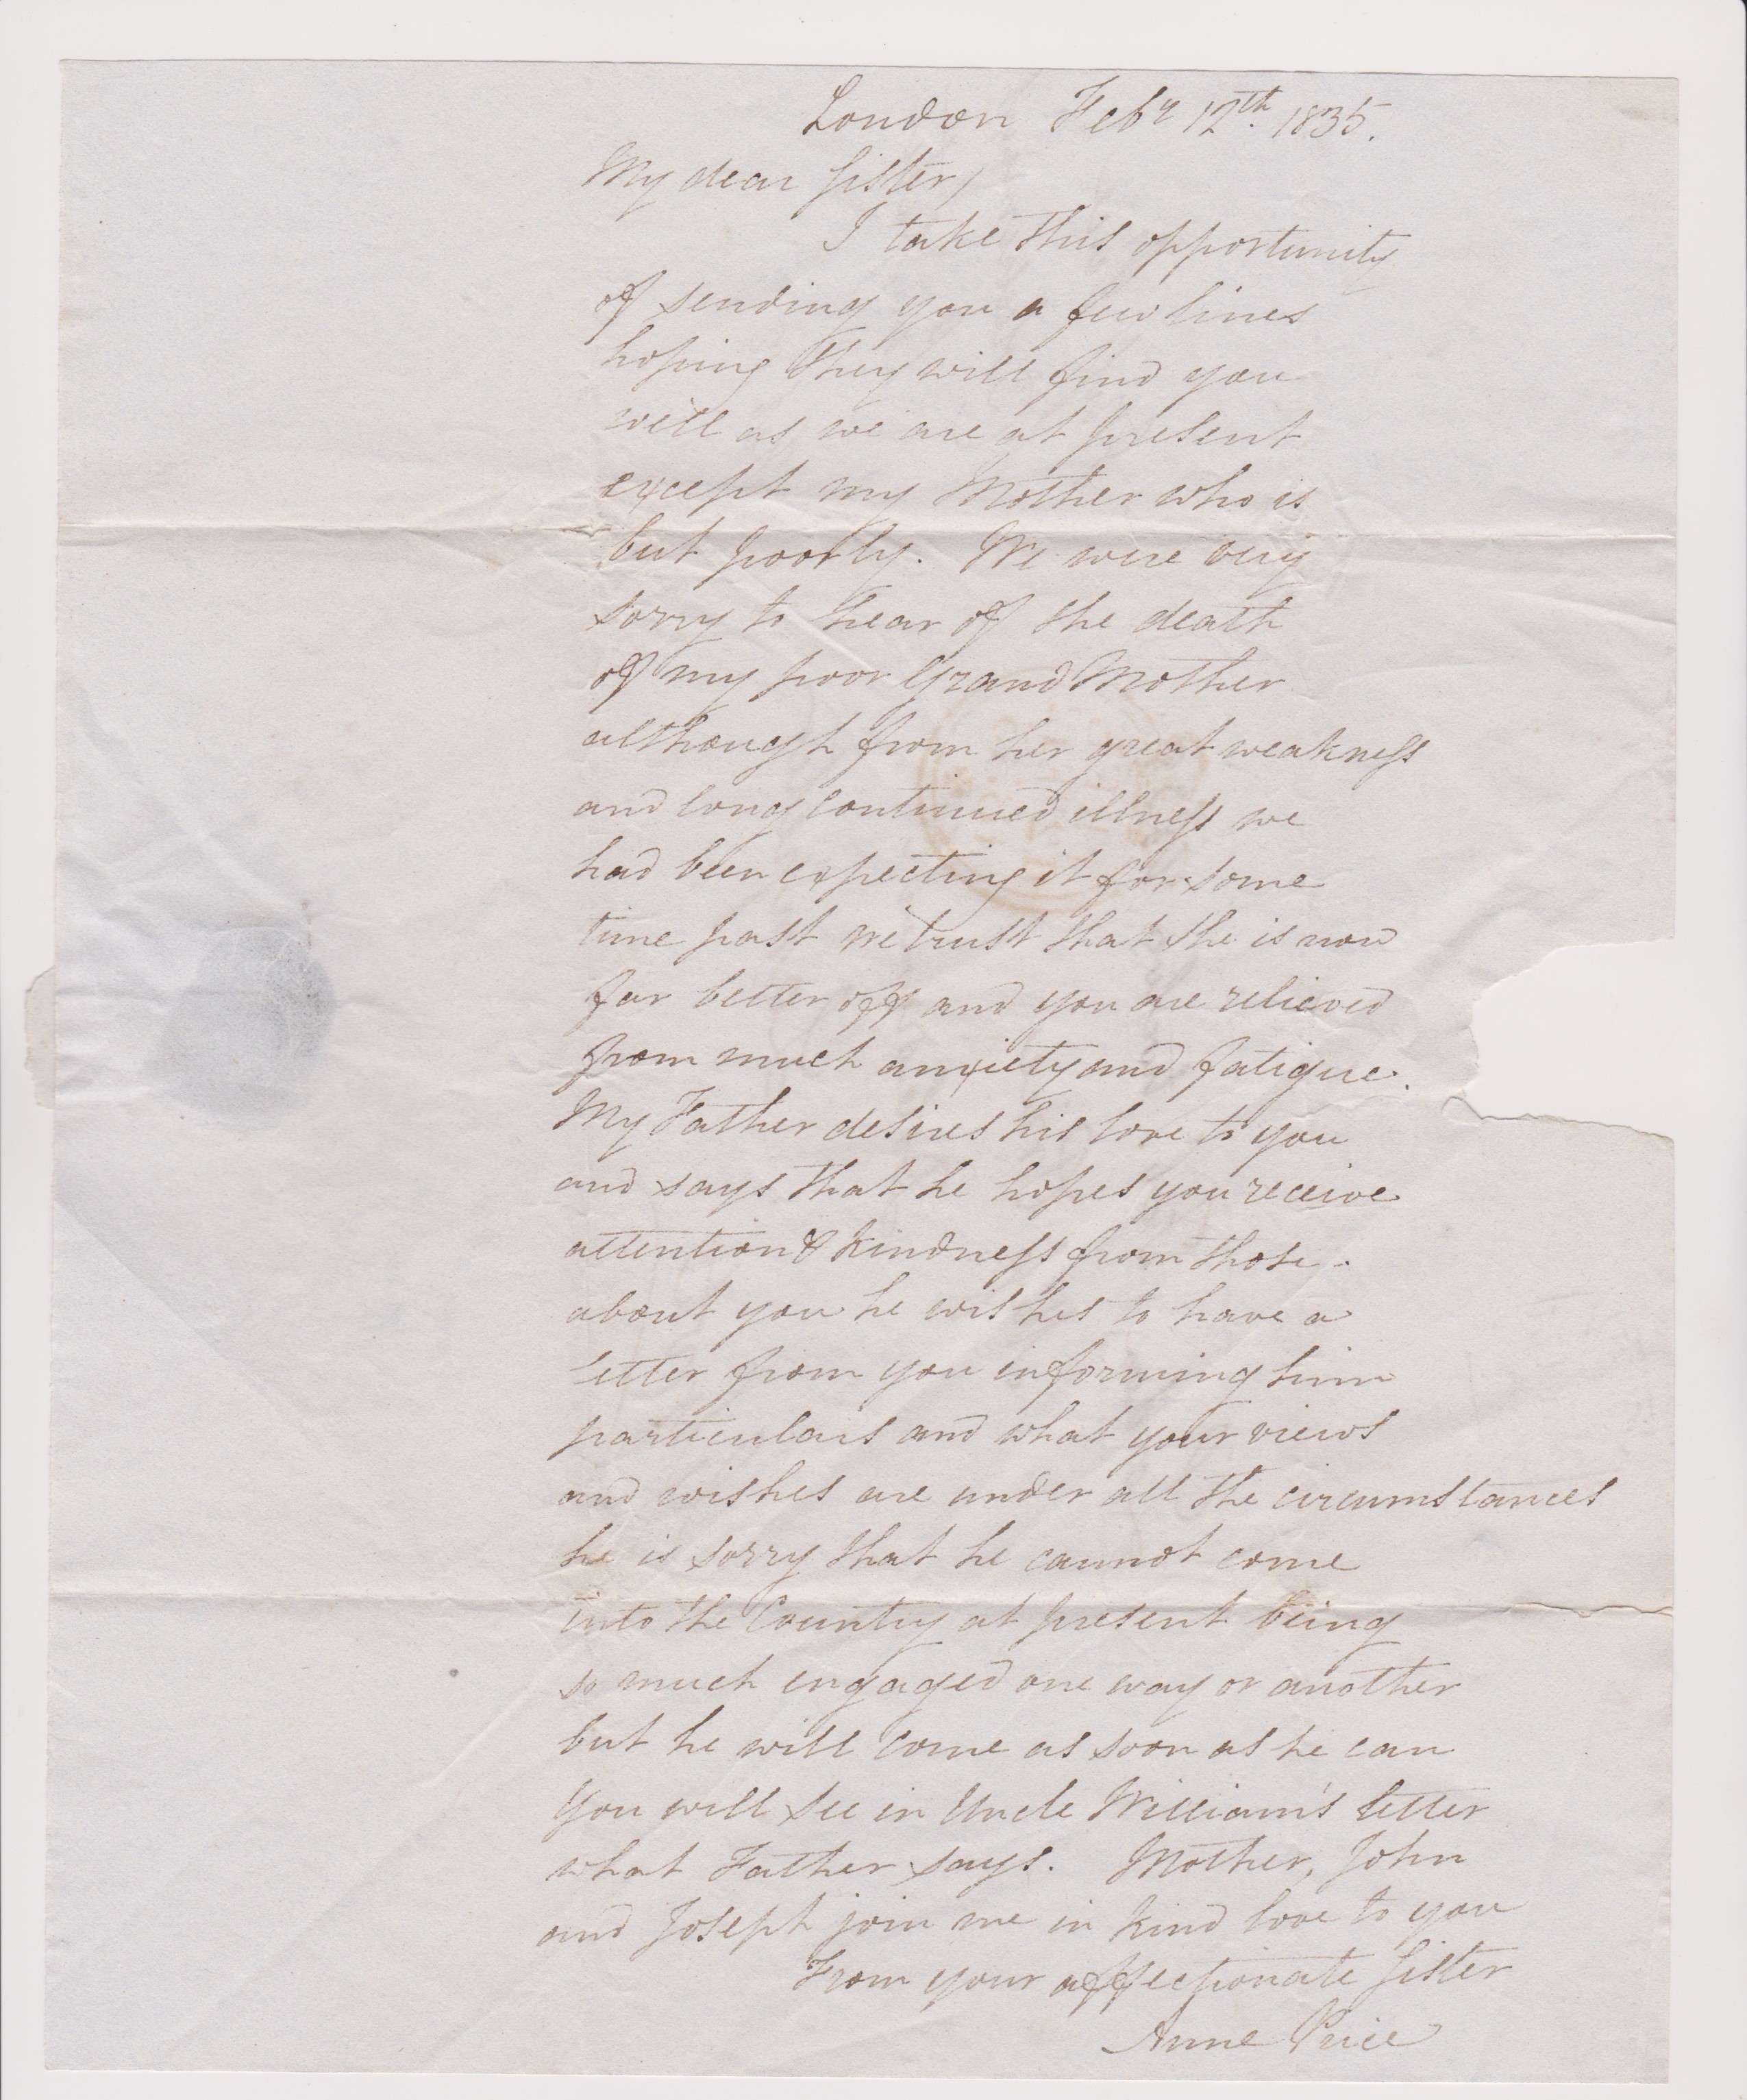 London Feby 12th. 1835.
My dear Sister,
I take this opportunity
of sending you a few lines
hoping they will find you
well as we are at present
except my Mother who is
but poorly. We were very
sorry to hear of the death
of my poor Grand Mother
although from her great weakness
and long continued illness we
had been expecting it for some
time past we trust that she is now
far better off and you are relieved
from much anxiety and fatigue.
My Father desires his love to you
and says that he hopes you receive
attention & kindness from those
about you he wishes to have a
letter from you informing him
particulars and what your views
and wishes are under all the circumstances
he is sorry that he cannot come
into the Country at present being
so much engaged one way or another
but he will come as soon as he can
You will see in Uncle William's letter
what Father says. Mother, John
and Joseph join me in kind love to you
From your affectionate Sister
Anne Price